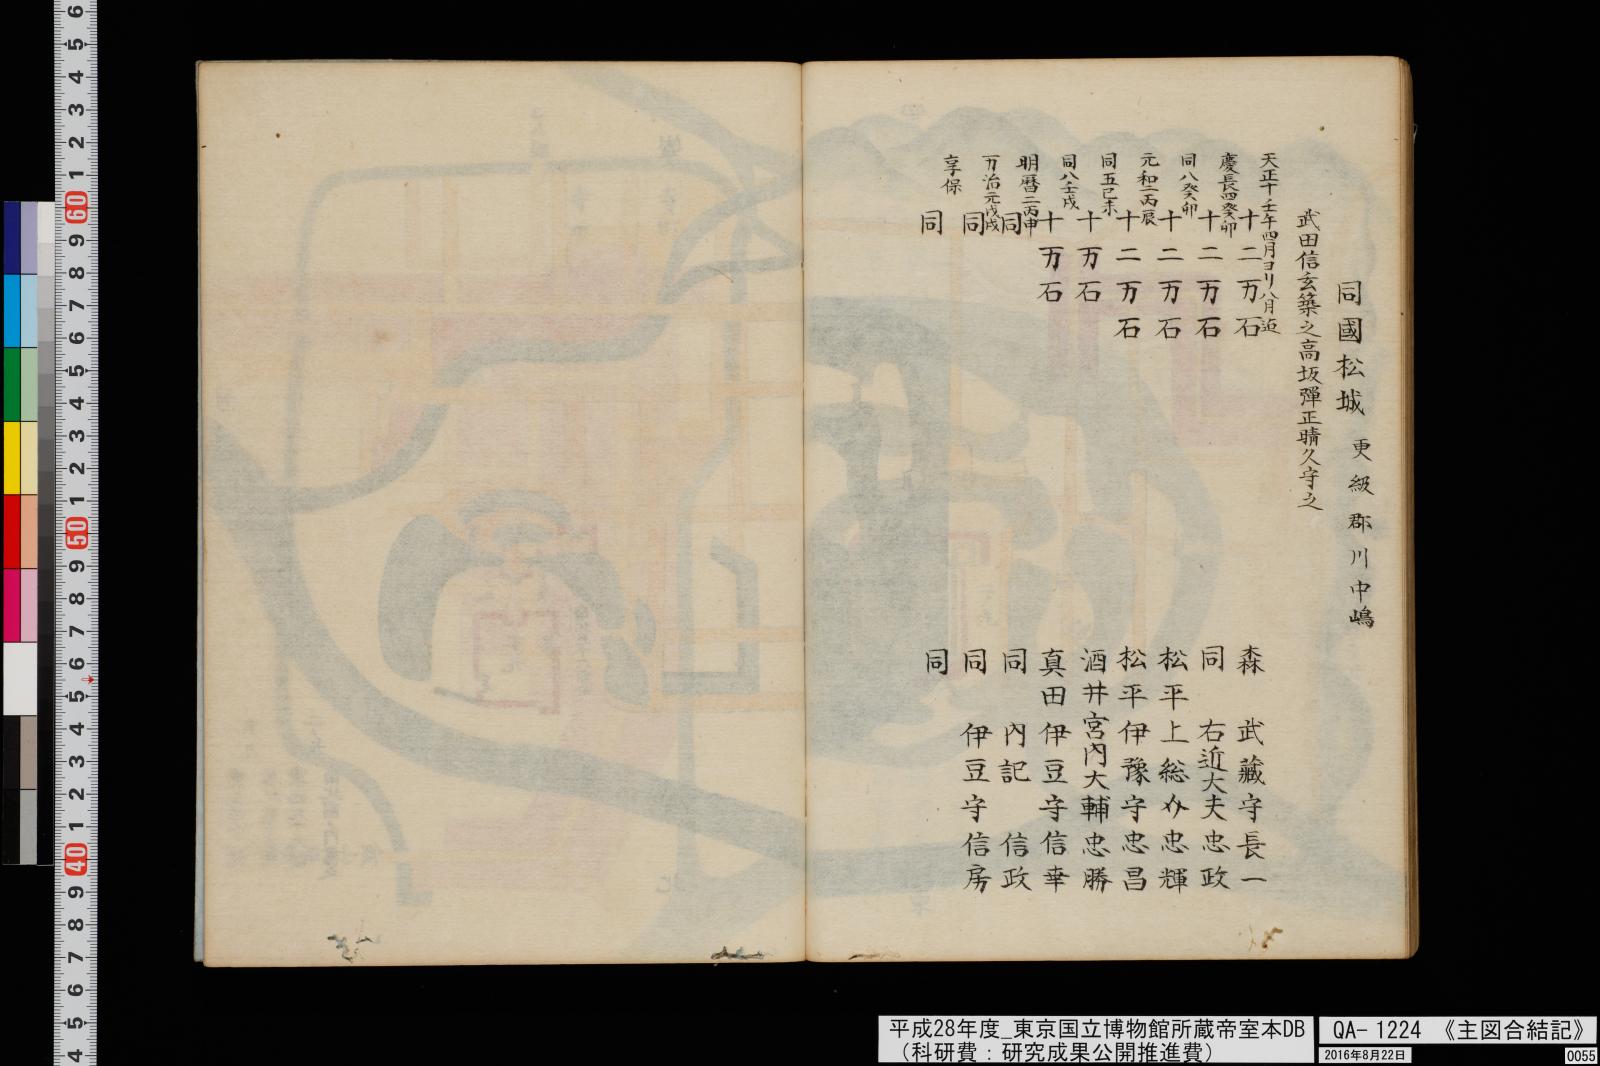 同國松城 更級郡川中嶋
武田信玄築之高坂彈正晴久守之
天正十壬午四月ヨリ八月迠
十二万石 森 武藏守長一
慶長四癸卯
十二万石 同 右近大夫忠政
同八癸卯
十二万石 松平上総介忠輝
元和二丙辰
十二万石 松平伊豫守忠昌
同五己未
十万石 酒井宮内大輔忠勝
同八壬戌
十万石 真田伊豆守信幸
明暦二丙申
同 同 内記 信政
万治元戊戌
同 同 伊豆守信房
享保
同 同
平成28年度_東京国立博物館所蔵帝室本DB
(科研費:研究成果公開推進費)
QA-1224 《主図合結記》
2016年8月22日
0055